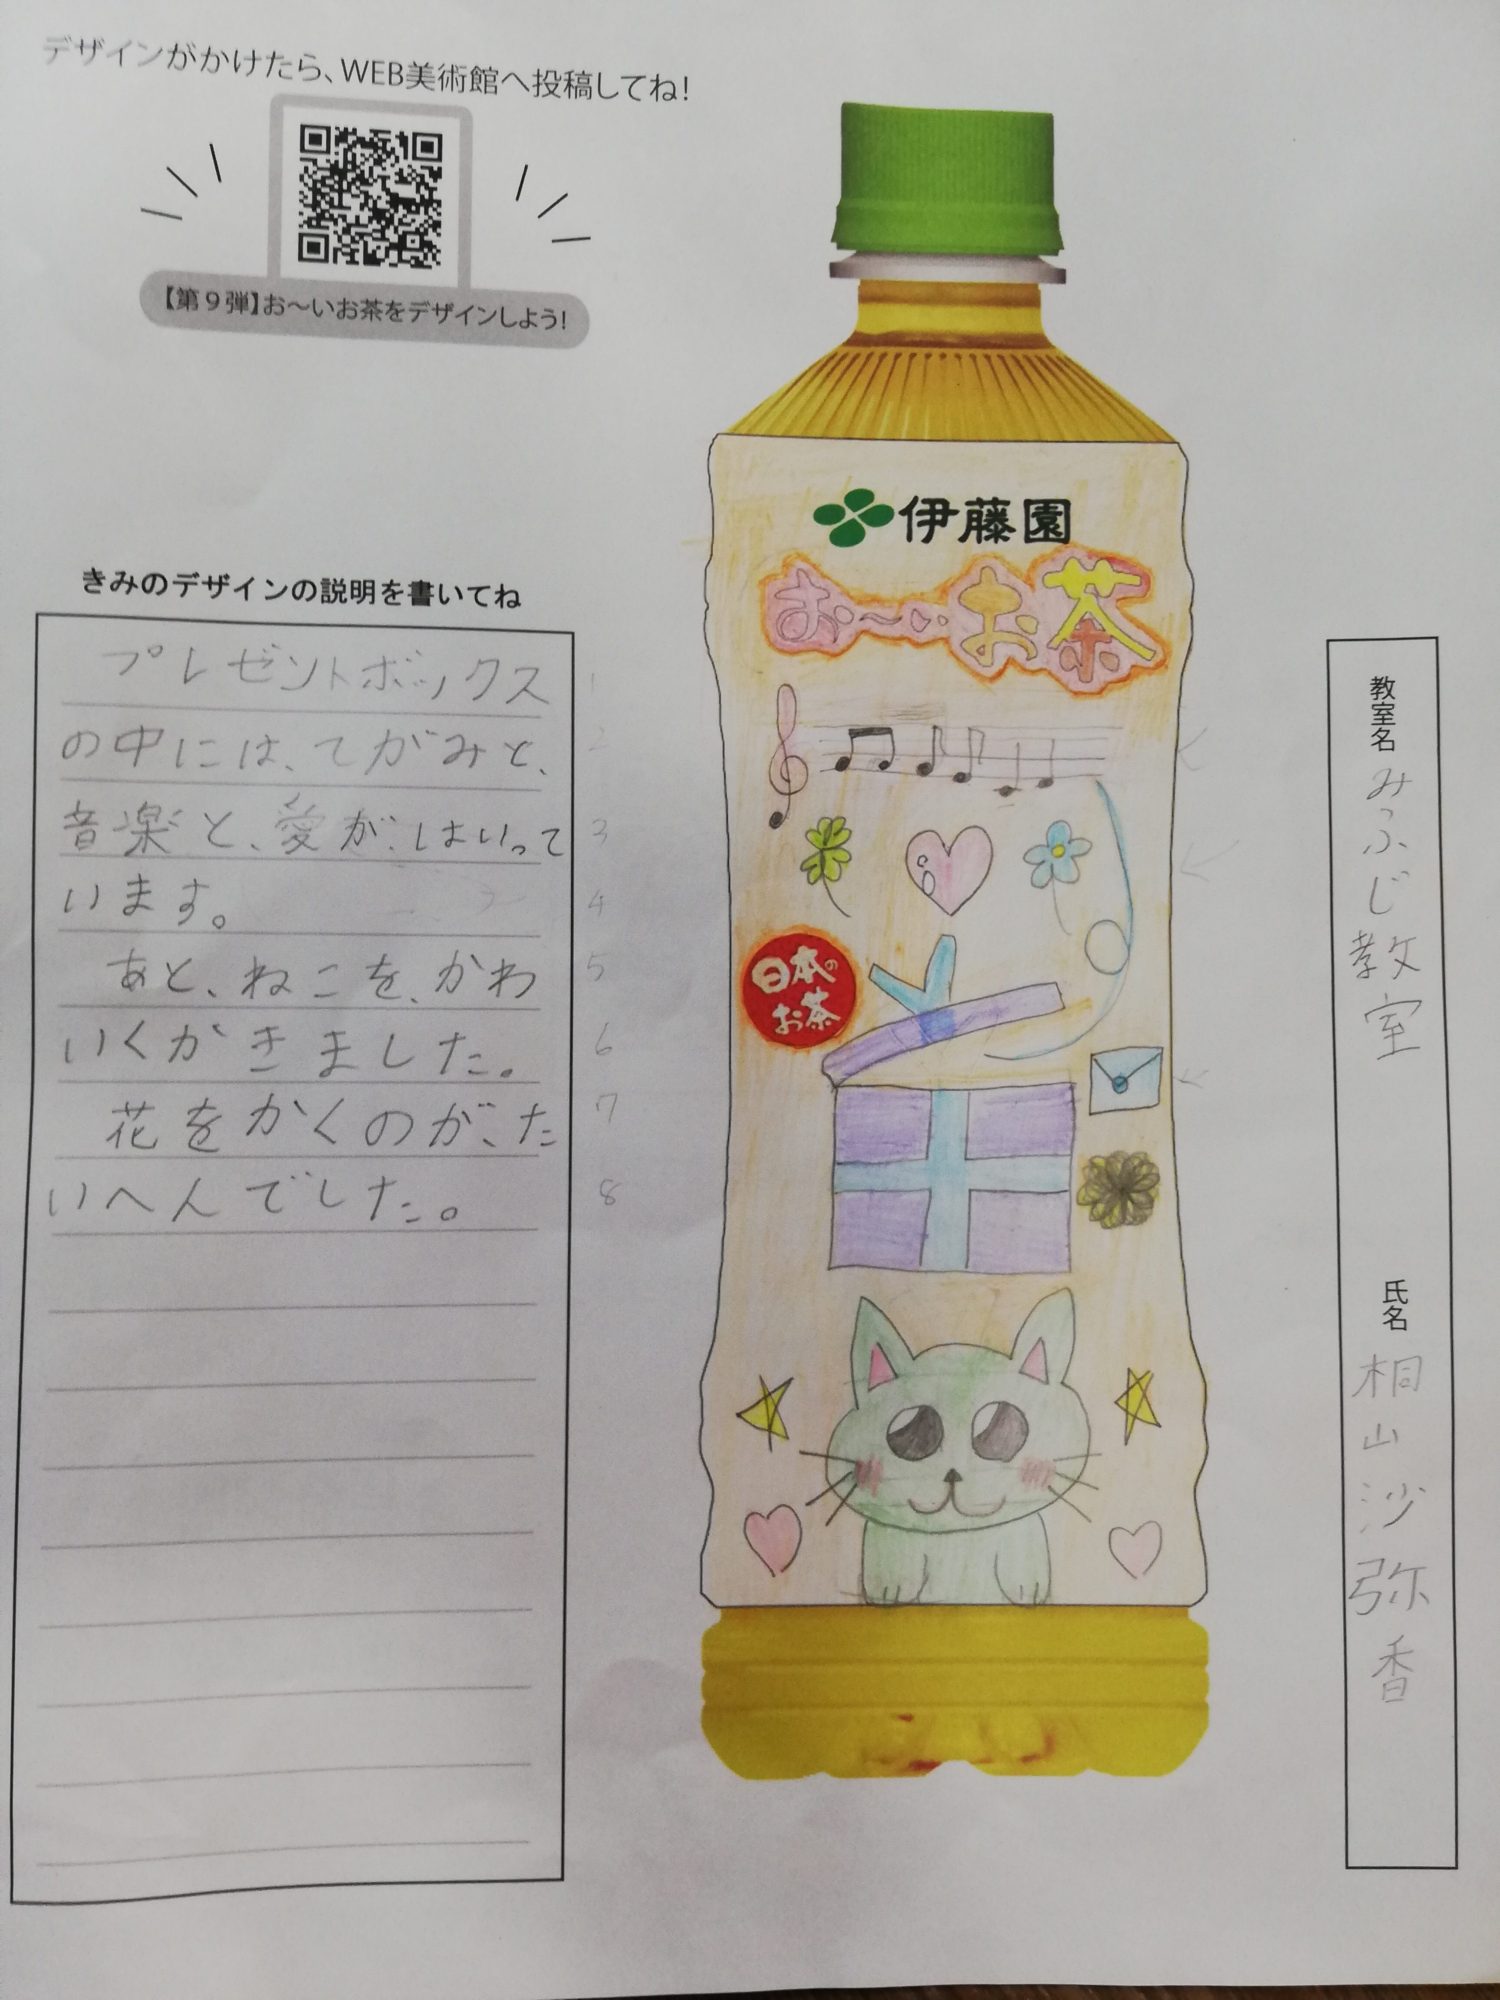 デザインがかけたら、WEB美術館へ投稿してね!
【第9弾】お～いお茶をデザインしよう!
伊藤園
お～いお茶
日本の
お茶
きみのデザインの説明を書いてね
プレゼントボックス
の中には、てがみと、
音楽と、愛が、はいって
います。
あと、ねこを、かわ
いくかきました。
花をかくのが、た
いへんでした。
1
2
3
4
5
6
7
8
教室名 みふじ教室
氏名 桐山沙弥香